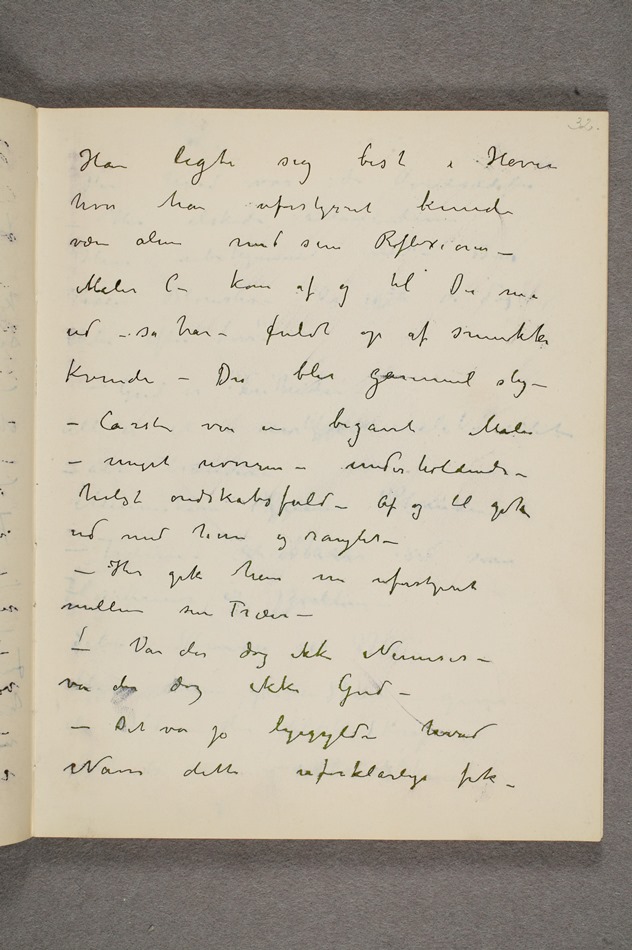 32.
Han ligte sig best i Haven
hvor han uforstyrret kunde
være alene med sine Reflexioner –
Maler C – kom af og til Du må
ud – så han – fuldt op af smukke
Kvinder – Du blir gammel slig –
– Carsten var en begavet Maler
– meget morsom – underholdende –
helst ondskabsfuld – Af og til gik
ud med ham og ranglet –
– Her gik han nu uforstyrret
mellem sine Træer –
– Var der dog ikke Nemesis –
var der dog ikke Gud –
– Det var jo ligegyldig hvad
Navn dette uforklarlige fik –